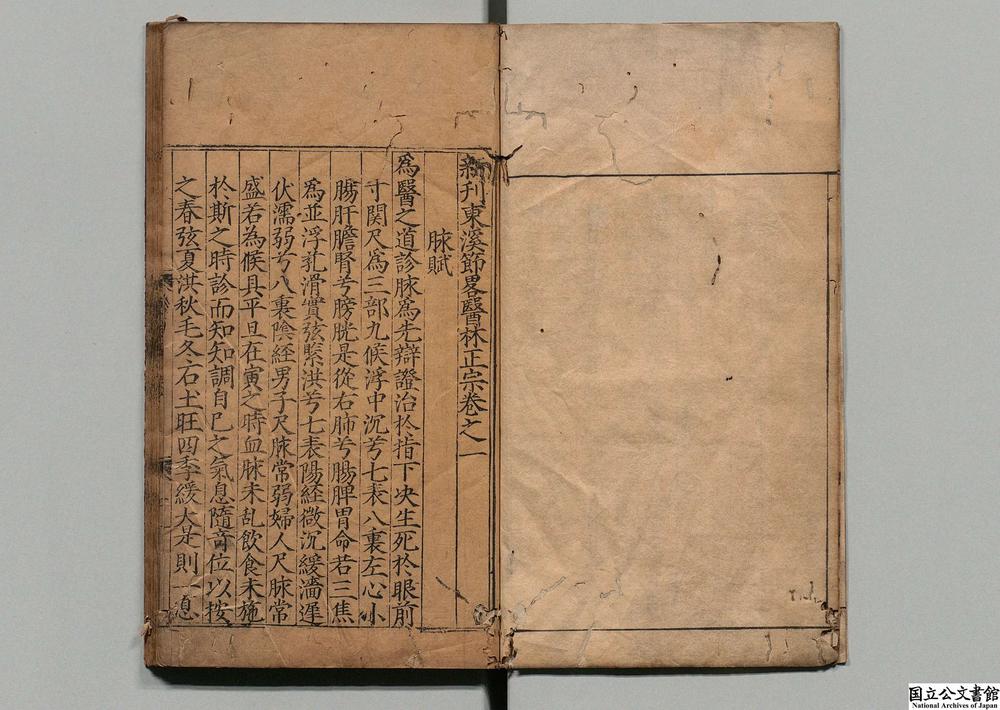 新刊東溪節畧醫林正宗卷之一
脉賦
為醫之道診脉為先辯證治於指下决生死於眼前
寸関尺為三部九候浮中沉兮七表八裏左心小
腸肝膽腎兮膀胱是從右肺兮腸脾胃命若三焦
為並浮芤滑實弦緊洪兮七表陽経微沉緩濇遲
伏濡弱兮八裏陰経男子尺脉常弱婦人尺脉常
盛若為候具平旦在寅之時血脉未乱飲食未施
於斯之時診而知知調自已之氣息隨音位以按
之春弦夏洪秋毛冬石土旺四季緩大是則一息
国立公文書館
National Archives of Japan